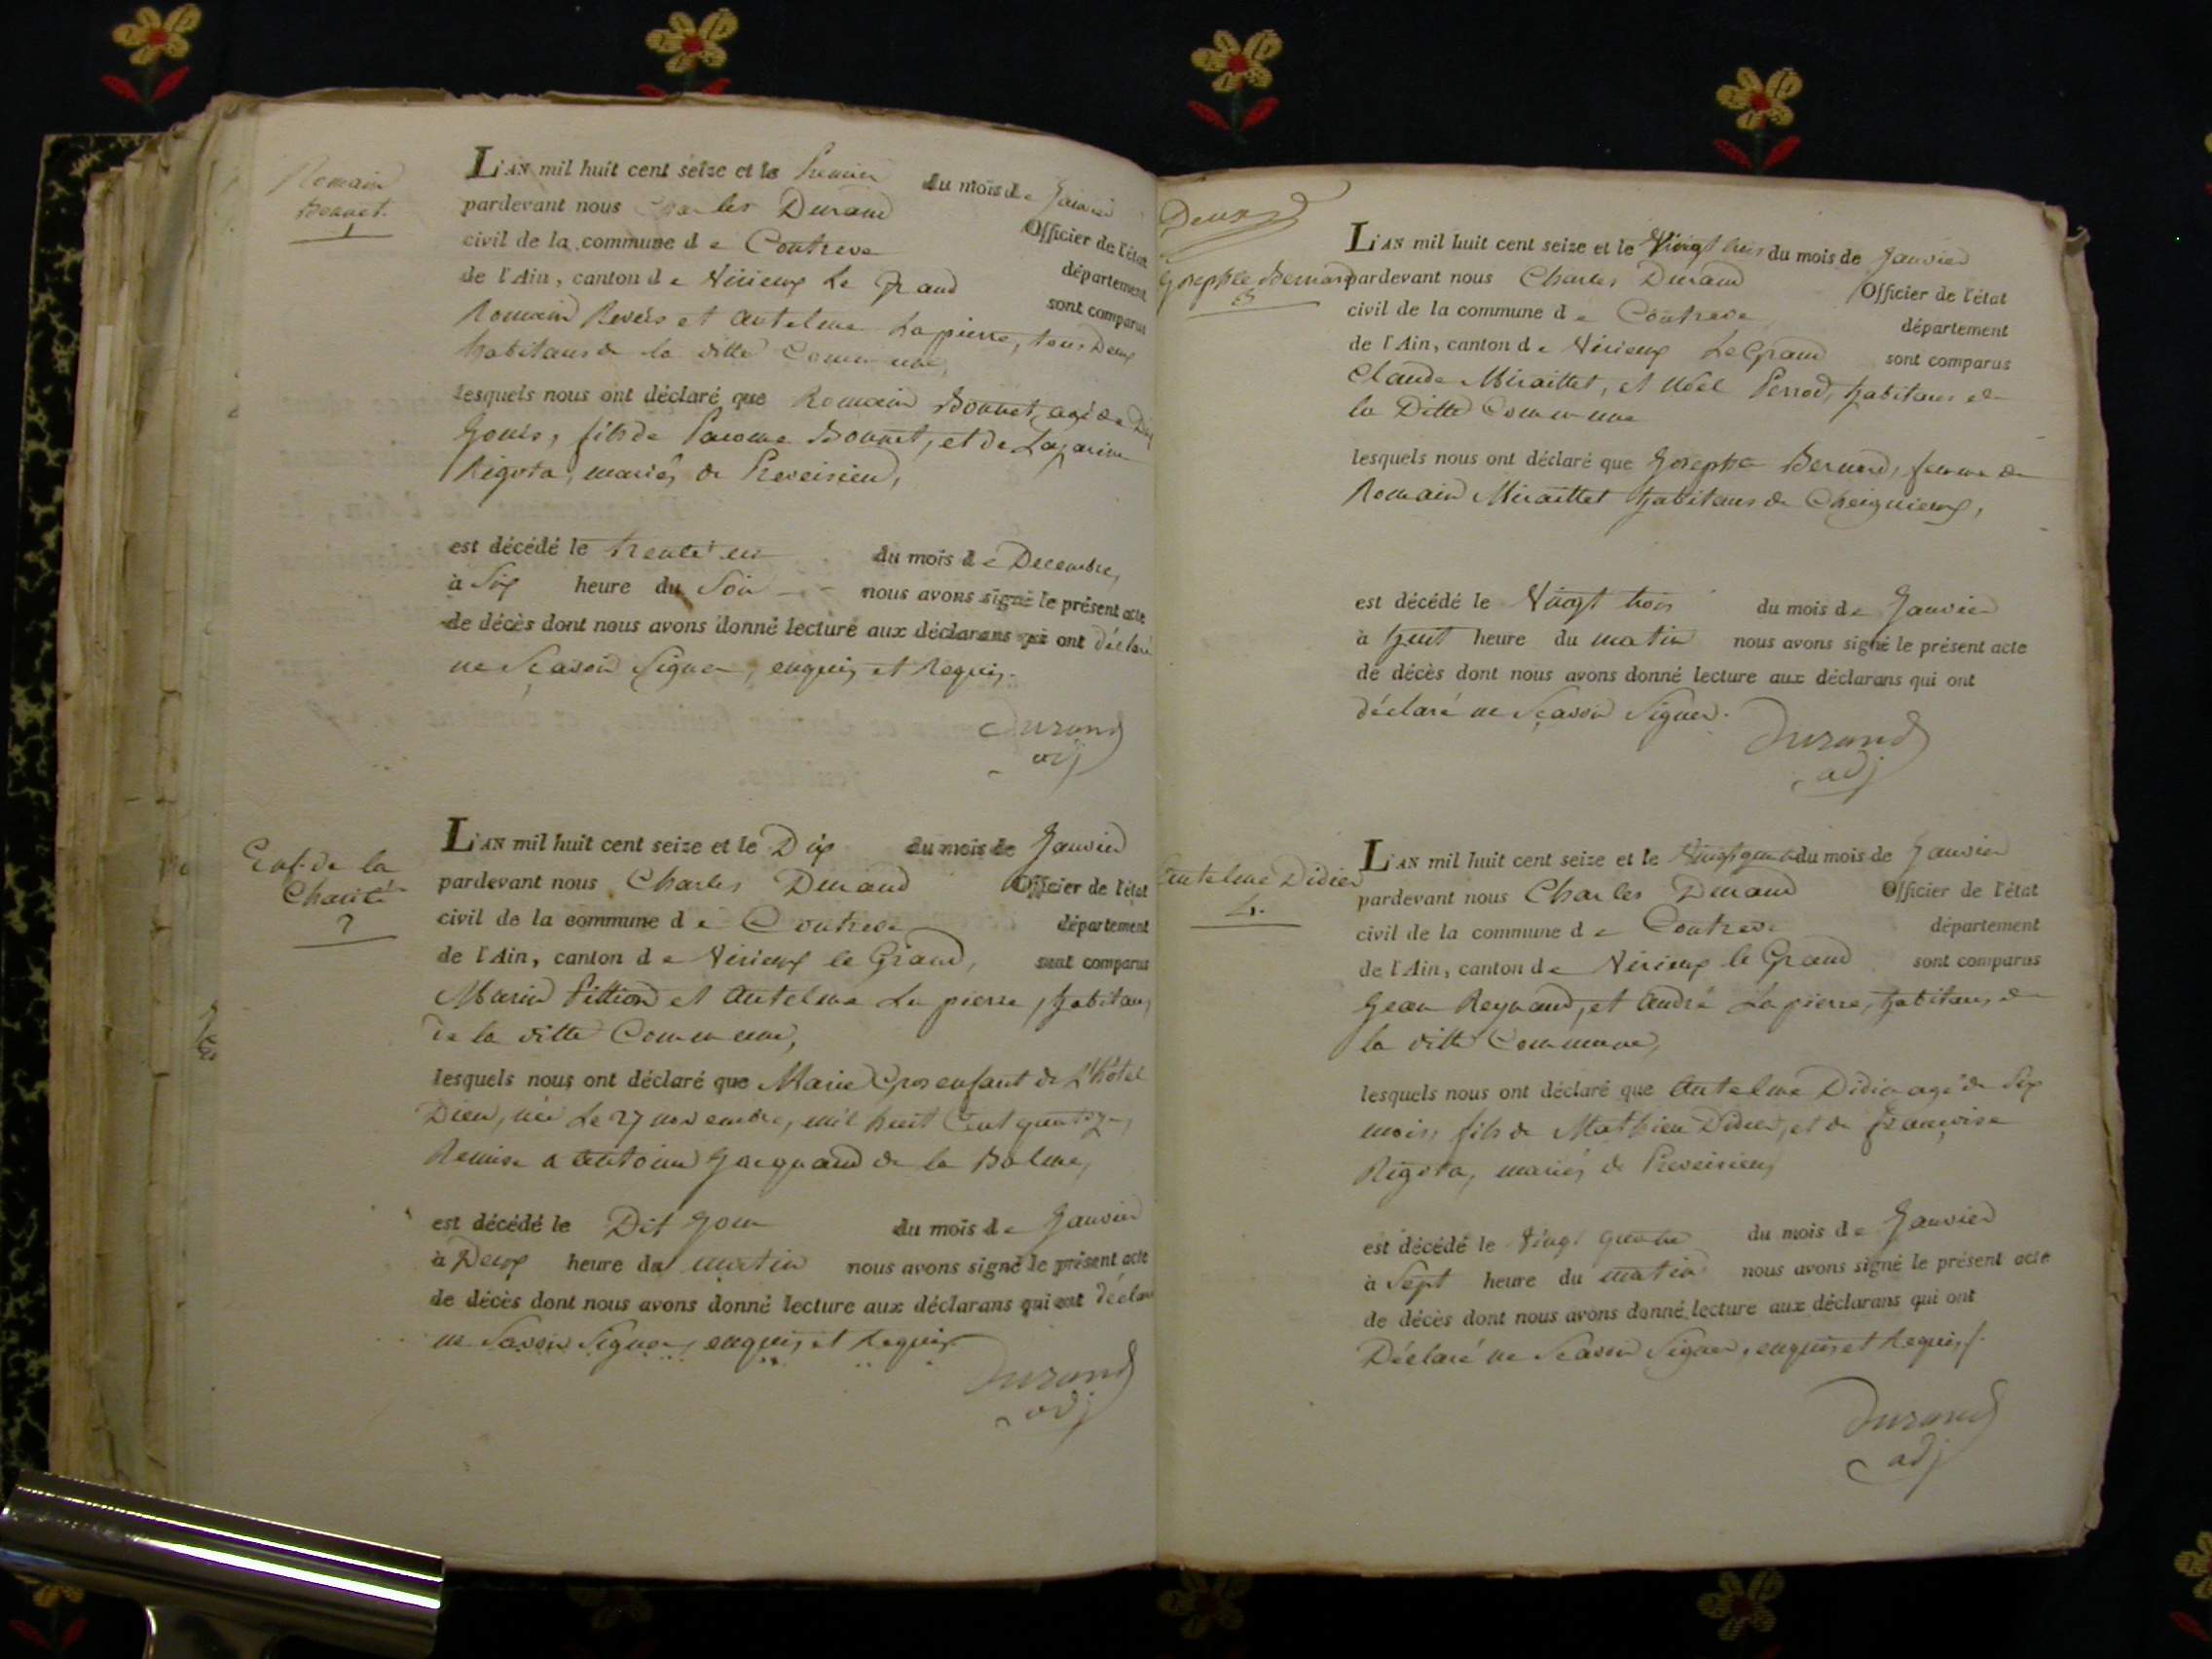 Romain
Bonnet
1
L'AN mil huit cent seize et le Premier du mois de Janvier
pardevant nous Charles Durand Officier de l'état
civil de la commune de Contreve département
de l'Ain, canton de Virieux Le Grand sont comparus
Romain et Antelme Lapierre, tous Deux
habitans de la ditte Commune,
lesquels nous ont déclaré que Romain Bonnet, agé de Dix
Jours, fils de Bonnet, et de
Rigota, mariés de Preveisieu,
est décédé le trente un du mois de Decembre,
à Six heure du Soir nous avons signé le présent acte
de décès dont nous avons donné lecture aux déclarans qui ont déclaré
ne Scavoir Signer, enquis et Requis.
Durand
adj
Enf. de la
Charité
2
L'AN mil huit cent seize et le Dix du mois de Janvier
pardevant nous Charles Durand Officier de l'état
civil de la commune de Contreve département
de l'Ain, canton de Virieux le Grand, sont comparus
Marin Pittion et Antelme La pierre, habitans
de la ditte Commune,
lesquels nous ont déclaré que Marie enfant de L'hôtel
Dieu, née Le 27 novembre, mil huit Cent quatorze,
Remise a Antoine Jacquand de la Balme,
est décédé le Dit Jour du mois de Janvier
à Deux heure du matin nous avons signé le présent acte
de décès dont nous avons donné lecture aux déclarans qui ont déclaré
ne Savoir Signer, enquis et Requis
Durand
adj
Deux
Josephte Bernard
3
L'AN mil huit cent seize et le Vingt trois du mois de Janvier
pardevant nous Charles Durand Officier de l'état
civil de la commune de Contreve département
de l'Ain, canton de Virieux Le Grand sont comparus
Claude Miraillet, et Noel Perrod, habitans de
la Ditte Commune
lesquels nous ont déclaré que Josephte Bernard, femme de
Romain Miraillet habitans de Cheignieux,
est décédé le Vingt trois du mois de Janvier
à huit heure du matin nous avons signé le présent acte
de décès dont nous avons donné lecture aux déclarans qui ont
déclaré ne Scavoir Signer.
Durand
adj
Antelme Didier
4.
L'AN mil huit cent seize et le Vingt quatre du mois de Janvier
pardevant nous Charles Durand Officier de l'état
civil de la commune de Contreve département
de l'Ain, canton de Virieux le Grand sont comparus
Jean Reynaud, et André Lapierre, habitans de
la ditte Commune,
lesquels nous ont déclaré que Antelme Didier agé de Six
mois, fils de Mathieu Didier, et de françoise
Rigota, mariés de Preveisieu,
est décédé le Vingt quatre du mois de Janvier
à Sept heure du matin nous avons signé le présent acte
de décès dont nous avons donné lecture aux déclarans qui ont
Déclaré ne Scavoir Signer, enquis et Requis.
Durand
adj